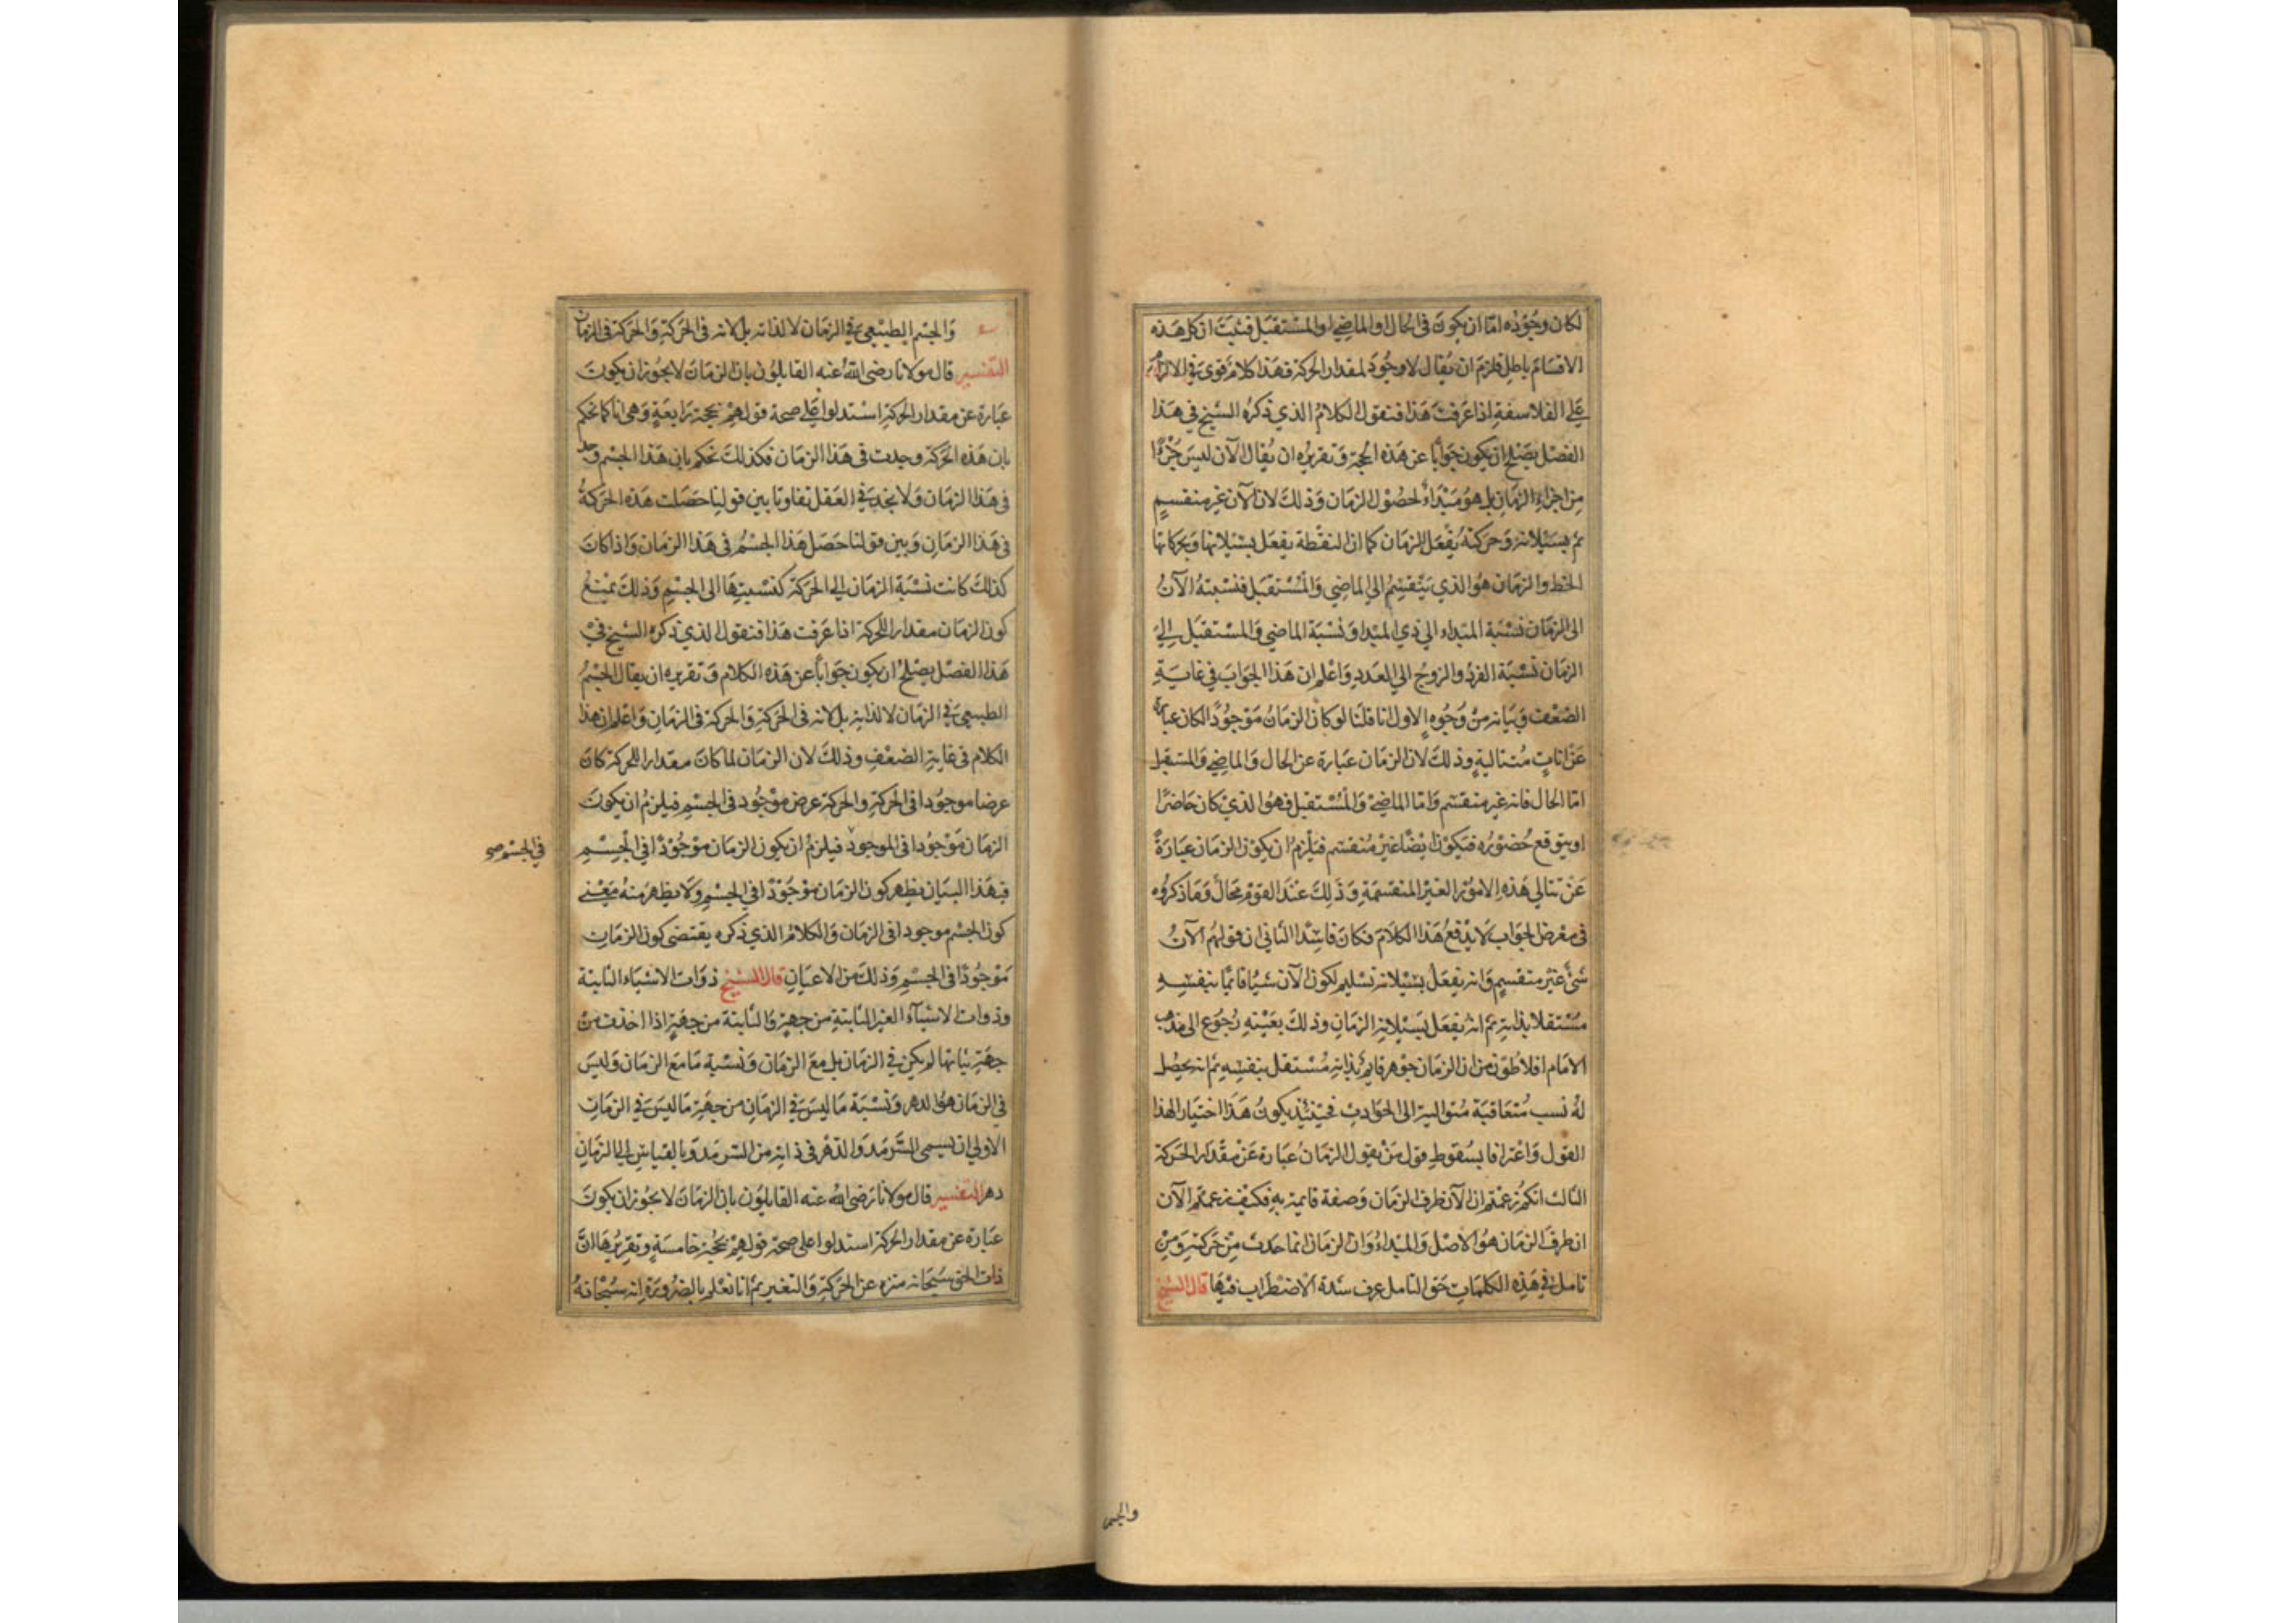 لكان وجوده اما ان يكون فى الحال او الماضي او المستقبل فثبت ان كل هذه
الاقسام باطل فلزم ان يقال لا وجود لمقدار الحركة فهذا كلام قوى في الالزام
على الفلاسفة اذا عرفت هذا فنقول الكلام الذي ذكره الشيخ في هذا
الفصل يصلح ان يكون جوابا عن هذه الحجة وتقريره ان يقال الآن ليس جزءا
من اجزاء الزمان بل هو مبداء لحصول الزمان وذلك لان الآن غير منقسم
ثم بسيلانه وحركته يفعل الزمان كما ان النقطة تفعل بسيلانها وبحركاتها
الخط والزمان هو الذي ينقسم الي الماضي والمستقبل فنسبته الآن
الى الزمان نسبة المبداء الي ذي المبدا ونسبة الماضي والمستقبل إلي
الزمان نسبة الفرد والزوج الي العدد واعلم ان هذا الجواب في غاية
الضعف وبيانه من وجوه الاول انا قلنا لو كان الزمان موجودا لكان عبارة
عن انات متتالية وذلك لان الزمان عبارة عن الحال والماضي والمستقبل
اما الحال فانه غير منقسم واما الماضي والمستقبل فهو الذي كان حاضرا
او يتوقع حضوره فيكون ايضا غير منقسم فيلزم ان يكون الزمان عبارة
عن تتالي هذه الامور الغير المنقسمة وذلك عند القوم محال وما ذكروه
فى معرض الجواب لا يدفع هذا الكلام فكان فاسدا الثاني ان قولهم الآن
شئ غير منقسم وانه يفعل بسيلانه تسليم لكون الآن شيا قائما بنفسه
مستقلا بذاته ثم انه يفعل بسيلانه الزمان وذلك بعينه رجوع الى مذهب
الامام افلاطون من ان الزمان جوهر قايم بذاته مستقل بنفسه ثم انه يحصل
له نسب متعاقبة متوالية الى الحوادث فحينئذ يكون هذا اختيارا لهذا
القول واعترافا بسقوط قول من يقول الزمان عبارة عن مقدار الحركة
الثالث انكم زعمتم ان الآن طرف الزمان وصفة قايمة به فكيف زعمتم الآن
ان طرف الزمان هو الاصل والمبداء وان الزمان انما حدث من حركته ومن
تامل في هذه الكلمات حق التامل عرف شدة الاضطراب فيها قال الشيخ
والجسم
والجسم الطبيعي في الزمان لا لذاته بل لانه فى الحركة والحركة فى الزمان
التفسير قال مولانا رضى الله عنه القايلون بان الزمان لا يجوز ان يكون
عبارة عن مقدار الحركة استدلوا على صحة قولهم بحجة رابعة وهى انا كما نحكم
بان هذه الحركة وجدت فى هذا الزمان فكذلك نحكم بان هذا الجسم وجد
فى هذا الزمان ولا نجد في العقل تفاوتا بين قولنا حصلت هذه الحركة
فى هذا الزمان وبين قولنا حصل هذا الجسم فى هذا الزمان واذا كان
كذلك كانت نسبة الزمان الى الحركة كنسبتها الى الجسم وذلك يمنع
كون الزمان مقدارا للحركة اذا عرفت هذا فنقول الذي ذكره الشيخ في
هذا الفصل يصلح ان يكون جوابا عن هذه الكلام وتقريره ان يقال الجسم
الطبيعي في الزمان لا لذاته بل لانه فى الحركة والحركة فى الزمان واعلم ان هذا
الكلام فى غاية الضعف وذلك لان الزمان لما كان مقدارا للحركة كان
عرضا موجودا فى الحركة والحركة عرض موجود فى الجسم فيلزم ان يكون
الزمان موجودا فى الموجود فيلزم ان يكون الزمان موجودا في الجسم
في الجسم صح
فبهذا البيان يظهر كون الزمان موجودا في الجسم ولا يظهر منه معنى
كون الجسم موجودا فى الزمان والكلام الذي ذكره يقتضى كون الزمان
موجودا فى الجسم وذلك من الاعيان قال الشيخ ذوات الاشياء الثابتة
وذوات الاشياء الغير الثابتة من جهة والثابتة من جهة اذا اخذت من
جهة ثباتها لم يكن في الزمان بل مع الزمان ونسبة ما مع الزمان وليس
في الزمان هو الدهر ونسبة ما ليس في الزمان من جهة ما ليس في الزمان
الاولى ان يسمى السرمد والدهر فى ذاته من السرمد وبالقياس الى الزمان
دهر التفسير قال مولانا رضى الله عنه القايلون بان الزمان لا يجوز ان يكون
عبارة عن مقدار الحركة استدلوا على صحة قولهم بحجة خامسة وتقريرها ان
ذات الحق سبحانه منزه عن الحركة والتغير ثم انا نعلم بالضرورة انه سبحانه